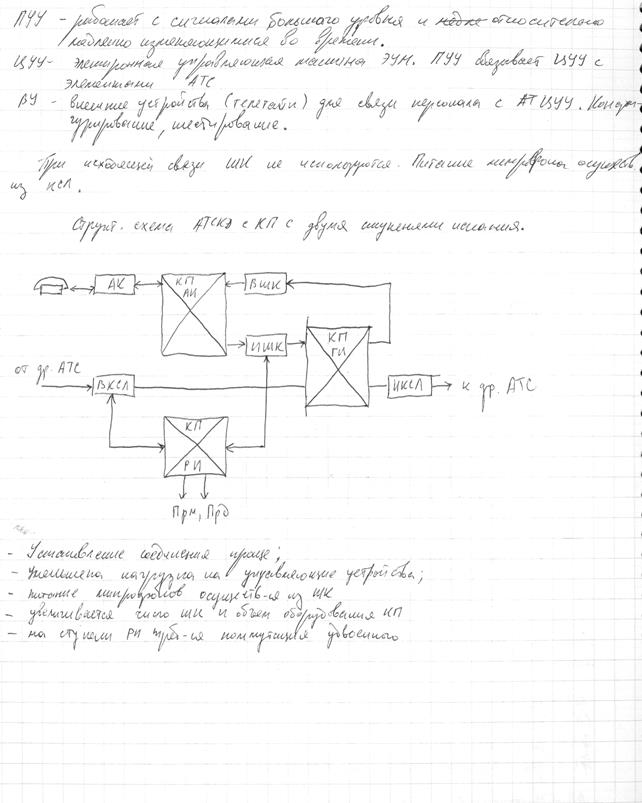 ПУУ - работает с сигналами большого уровня и относительно
медленно изменяющимися во времени.
ЦУУ - электронная управляющая машина ЭУМ. ПУУ связывает ЦУУ с
элементами АТС
ВУ - внешние устройства (телетайп) для связи персонала с АТ ЦУУ.
тестирование.
При исходящей связи ШК не используются. Питание микрофона осуществ
из ИСЛ.
Структ. схема АТСКЭ с КП с двумя ступенями искания.
АК
КП
АИ
ВШК
ИШК
КП
ГИ
от др. АТС
ВКСЛ
ИКСЛ
к др. АТС
КП
РИ
Прм, Прд
- Установление соединения проще;
- Уменьшена нагрузка на управляющие устройства;
- питание микрофонов осуществ-ся из ШК
- увеличивается число ШК и объем оборудования КП
- на ступени РИ треб-ся коммутация удвоенного